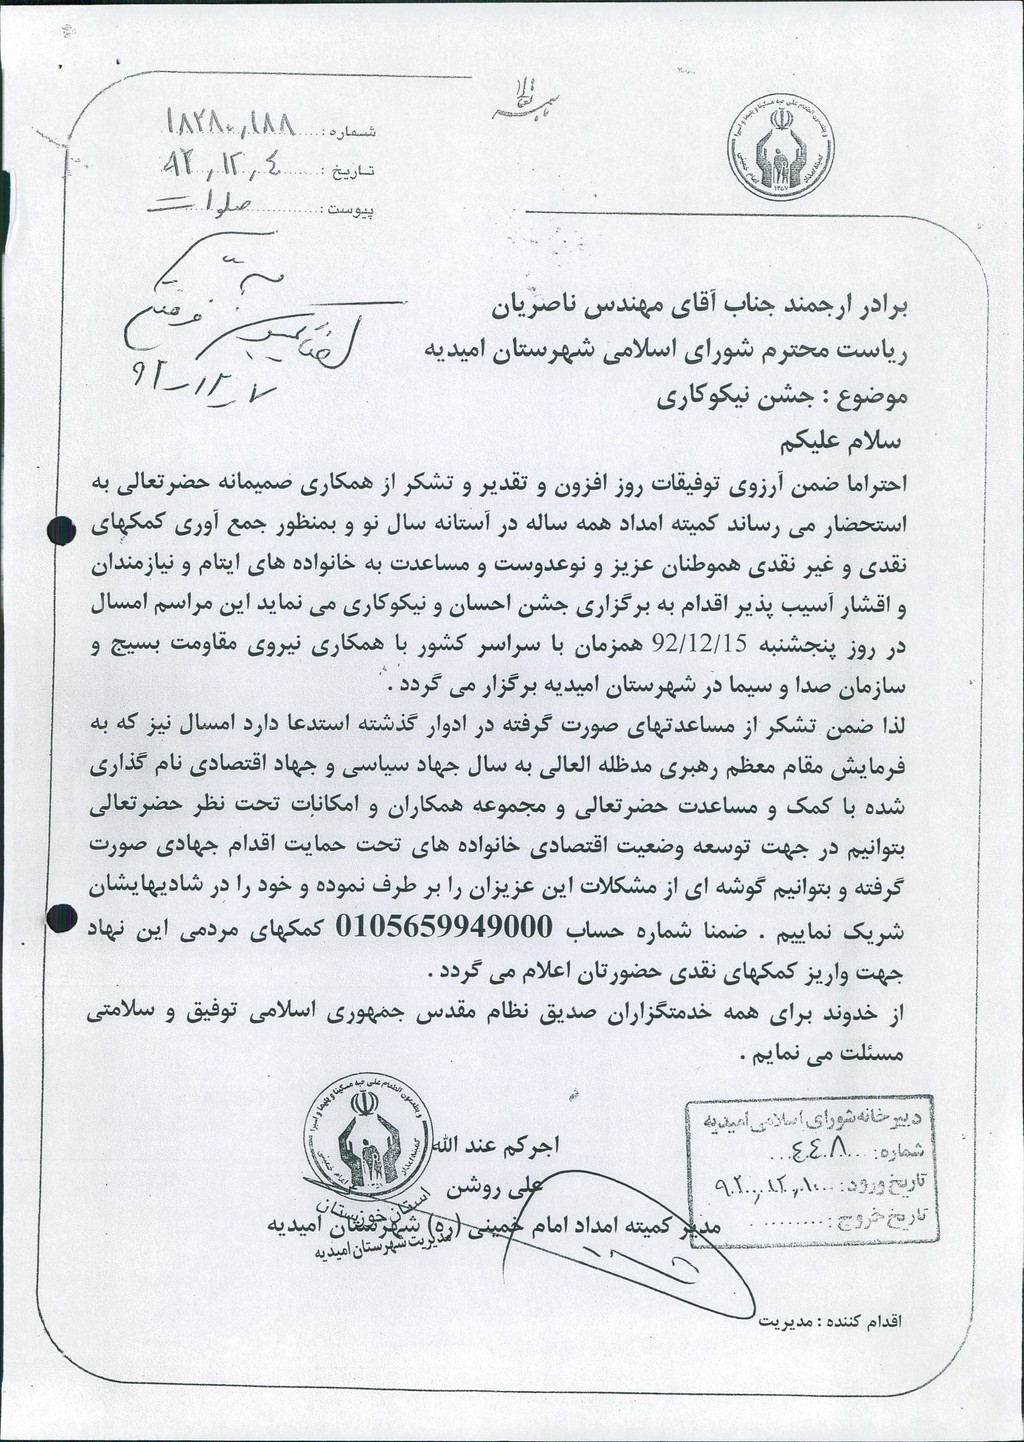 باسمه تعالی
شماره : ۱۸۲۸۰,۱۸۸
تاریخ : ۹۲,۱۲,۴
پیوست : صلوات
۹۲-۱۲-۷
برادر ارجمند جناب آقای مهندس ناصریان
ریاست محترم شورای اسلامی شهرستان امیدیه
موضوع : جشن نیکوکاری
سلام علیکم
احتراما ضمن آرزوی توفیقات روز افزون و تقدیر و تشکر از همکاری صمیمانه حضرتعالی به
استحضار می رساند کمیته امداد همه ساله در آستانه سال نو و بمنظور جمع آوری کمکهای
نقدی و غیر نقدی هموطنان عزیز و نوعدوست و مساعدت به خانواده های ایتام و نیازمندان
و اقشار آسیب پذیر اقدام به برگزاری جشن احسان و نیکوکاری می نماید این مراسم امسال
در روز پنجشنبه 92/12/15 همزمان با سراسر کشور با همکاری نیروی مقاومت بسیج و
سازمان صدا و سیما در شهرستان امیدیه برگزار می گردد .
لذا ضمن تشکر از مساعدتهای صورت گرفته در ادوار گذشته استدعا دارد امسال نیز که به
فرمایش مقام معظم رهبری مدظله العالی به سال جهاد سیاسی و جهاد اقتصادی نام گذاری
شده با کمک و مساعدت حضرتعالی و مجموعه همکاران و امکانات تحت نظر حضرتعالی
بتوانیم در جهت توسعه وضعیت اقتصادی خانواده های تحت حمایت اقدام جهادی صورت
گرفته و بتوانیم گوشه ای از مشکلات این عزیزان را بر طرف نموده و خود را در شادیهایشان
شریک نماییم . ضمنا شماره حساب 0105659949000 کمکهای مردمی این نهاد
جهت واریز کمکهای نقدی حضورتان اعلام می گردد .
از خدوند برای همه خدمتگزاران صدیق نظام مقدس جمهوری اسلامی توفیق و سلامتی
مسئلت می نمایم .
اجرکم عند الله
علی روشن
مدیر کمیته امداد امام خمینی (ره) شهرستان امیدیه
استان خوزستان
مدیریت شهرستان امیدیه
دبیرخانه شورای اسلامی امیدیه
شماره: ۴۴۸
تاریخ ورود: ۹۲,۱۲,۱۰
تاریخ خروج:
اقدام کننده : مدیریت